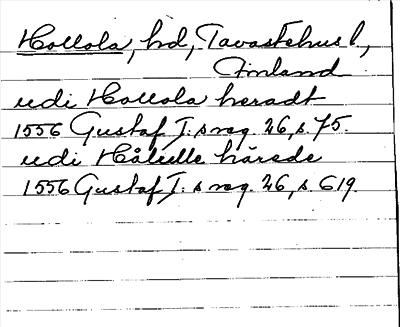 Hollola, hd, Tavastehus l,
Finland
udi Hollola heradt
1556 Gustaf I:s reg. 26, s. 75.
udi Hålülle härede
1556 Gustaf I:s reg. 26, s. 619.